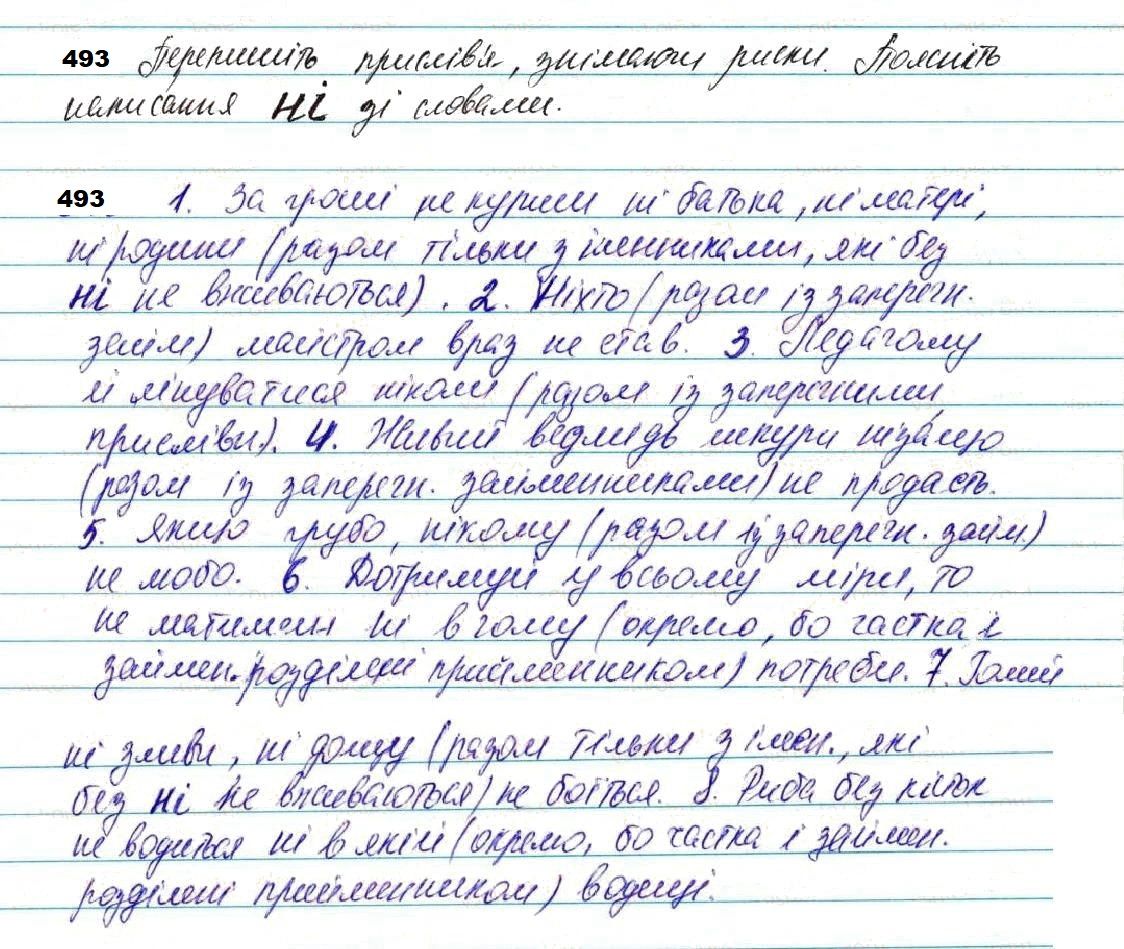 493 Перепишіть прислів'я, знімаючи риски. Поясніть
написання ні зі словами.
493 1. За гроші не купиш ні батька, ні матері,
ні родини (разом тільки з іменниками, які без
ні не вживаються). 2. Ніхто (разом із запереч.
займ) майстром враз не став. 3. Педагогу
й лінуватися ніколи (разом із заперечними
прислівн). 4. Живий ведмідь шкури нізащо
(разом із запереч. займенниками) не продасть.
5. Якщо грубо, нікому (разом із запереч. займ.)
не любо. 6. Дотримуй у всьому міри, то
не матимеш ні в чому (окремо, бо частка і
займен. розділені прийменником) потреби. 7. Голий
ні зливи, ні дощу (разом тільки з імен., які
без ні не вживаються) не боїться. 8. Риба без кісток
не водиться ні в якій (окремо, бо частка і займен.
розділені прийменником) водиці.